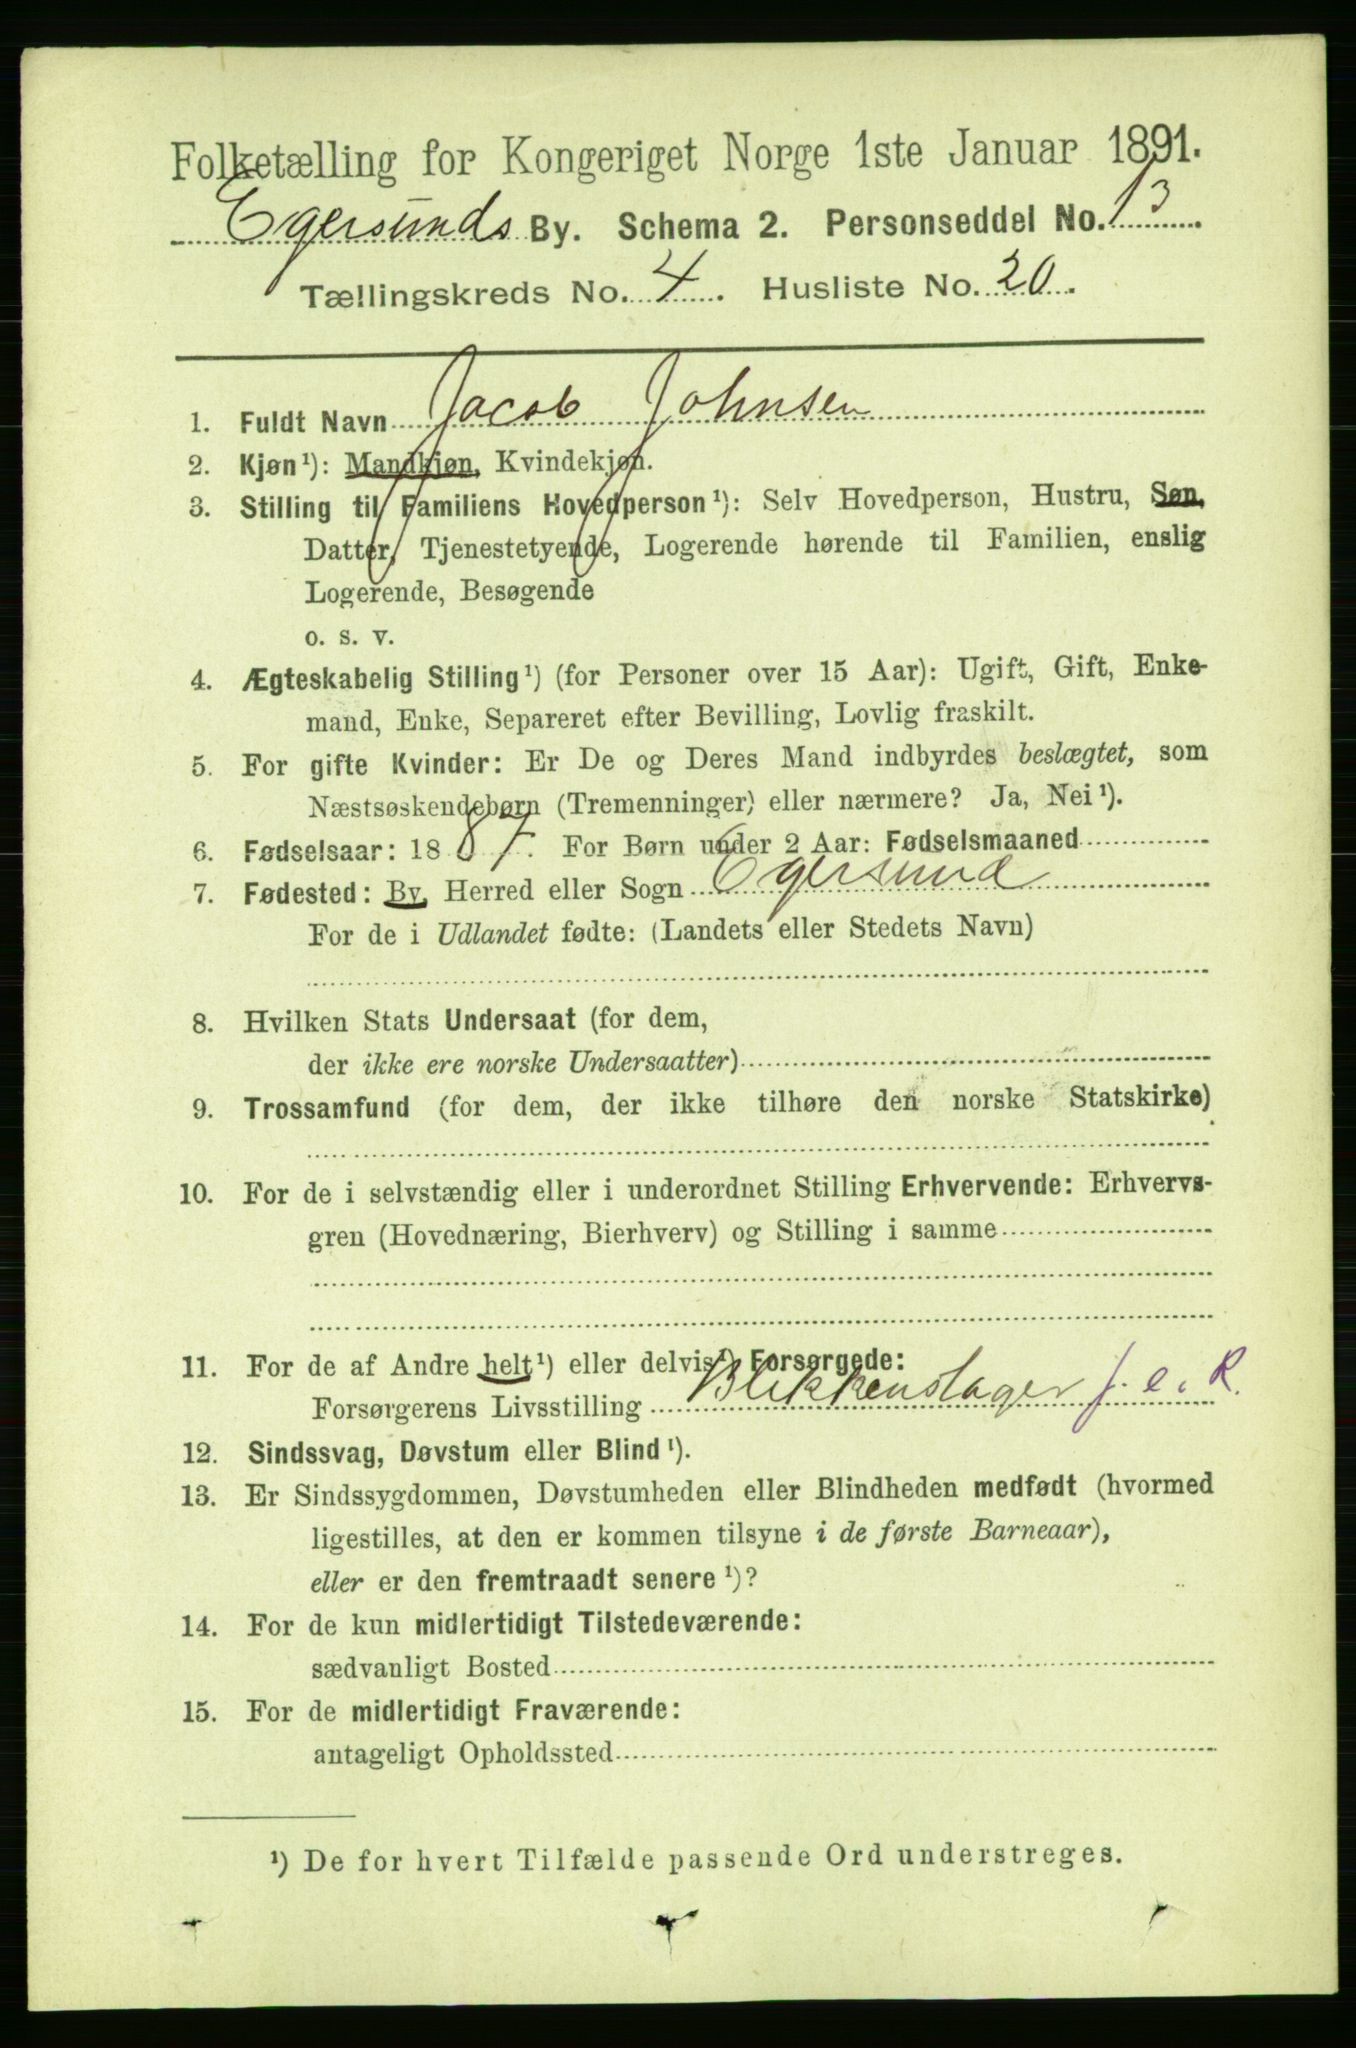 Folketælling for Kongeriget Norge 1ste Januar 1891.
Egersunds By. Schema 2. Personseddel No. 13.
Tællingskreds No. 4. Husliste No. 20.
1. Fuldt Navn Jacob Johnsen
2. Kjøn¹): Mandkjøn, Kvindekjøn.
3. Stilling til Familiens Hovedperson¹): Selv Hovedperson, Hustru, Søn,
Datter, Tjenestetyende, Logerende hørende til Familien, enslig
Logerende, Besøgende
o. s. v.
4. Ægteskabelig Stilling¹) (for Personer over 15 Aar): Ugift, Gift, Enke-
mand, Enke, Separeret efter Bevilling, Lovlig fraskilt.
5. For gifte Kvinder: Er De og Deres Mand indbyrdes beslægtet, som
Næstsøskendebørn (Tremenninger) eller nærmere? Ja, Nei¹).
6. Fødselsaar: 1887. For Børn under 2 Aar: Fødselsmaaned
7. Fødested: By, Herred eller Sogn Egersund
For de i Udlandet fødte: (Landets eller Stedets Navn)
8. Hvilken Stats Undersaat (for dem,
der ikke ere norske Undersaatter)
9. Trossamfund (for dem, der ikke tilhøre den norske Statskirke)
10. For de i selvstændig eller i underordnet Stilling Erhvervende: Erhvervs-
gren (Hovednæring, Bierhverv) og Stilling i samme
11. For de af Andre helt¹) eller delvis¹) Forsørgede:
Forsørgerens Livsstilling Blikkenslager f. e. R.
12. Sindssvag, Døvstum eller Blind¹).
13. Er Sindssygdommen, Døvstumheden eller Blindheden medfødt (hvormed
ligestilles, at den er kommen tilsyne i de første Barneaar),
eller er den fremtraadt senere¹)?
14. For de kun midlertidigt Tilstedeværende:
sædvanligt Bosted
15. For de midlertidigt Fraværende:
antageligt Opholdssted
¹) De for hvert Tilfælde passende Ord understreges.